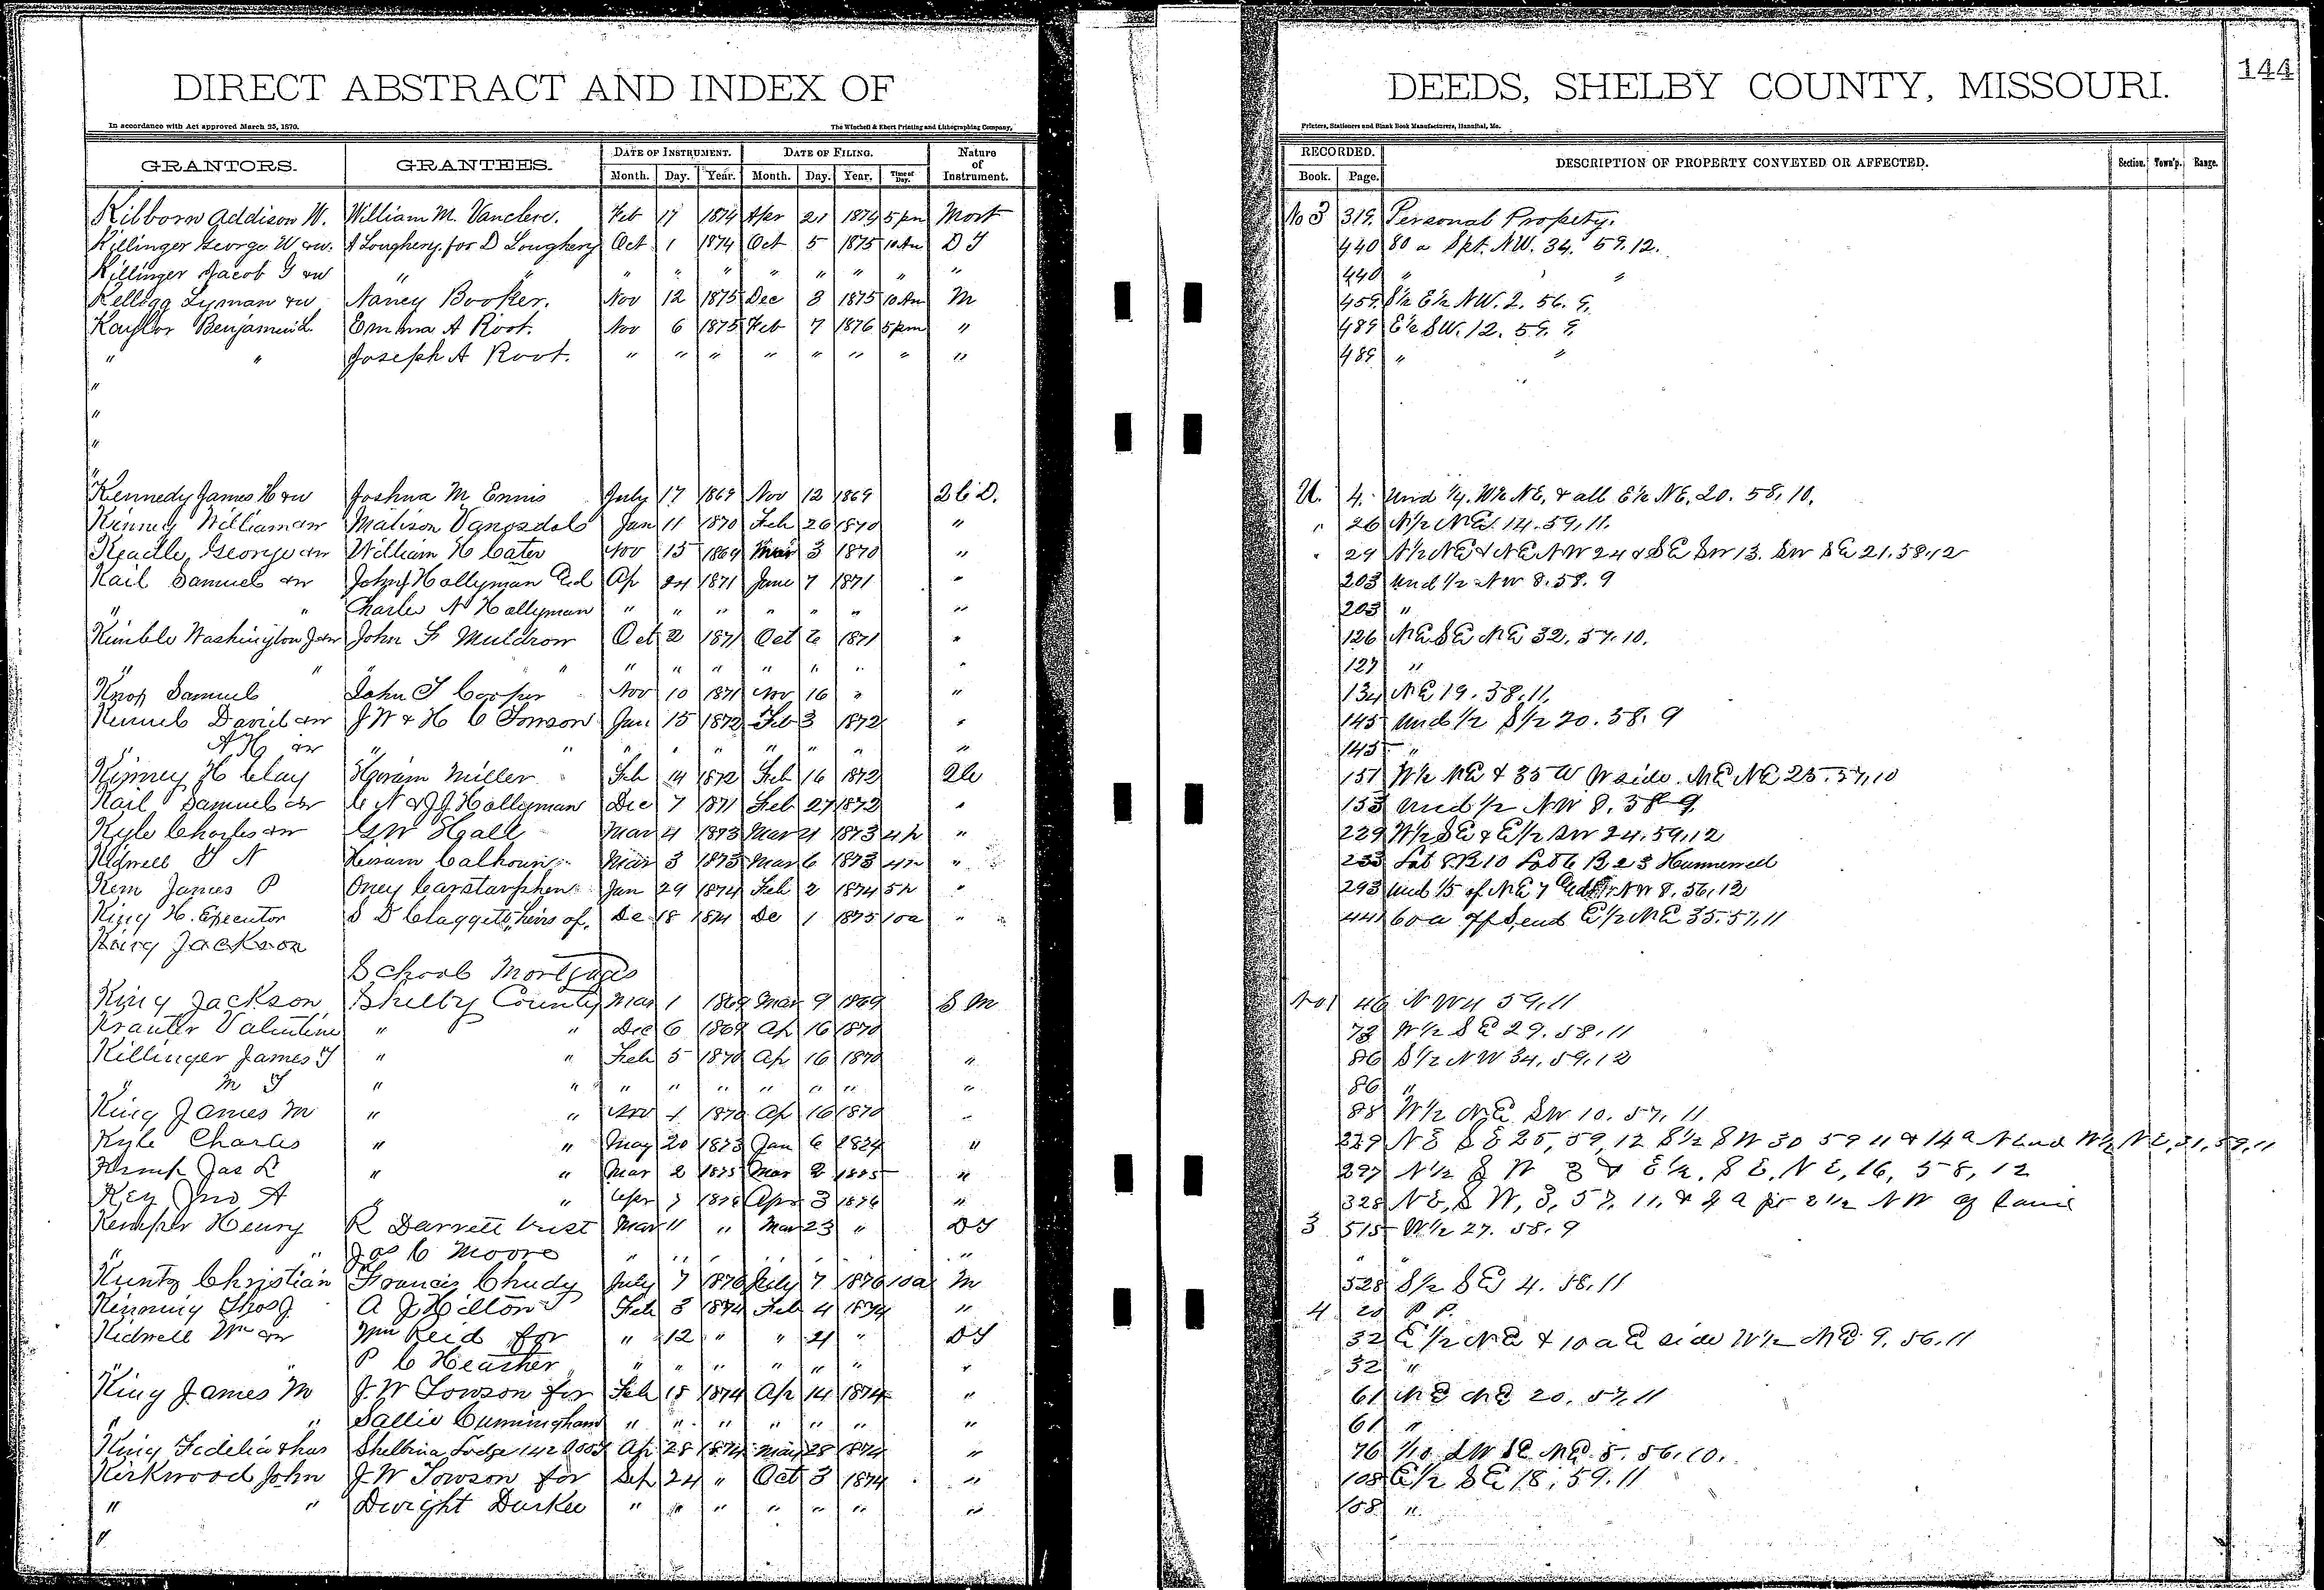 DIRECT ABSTRACT AND INDEX OF DEEDS, SHELBY COUNTY, MISSOURI. 144
In accordance with Act approved March 25, 1870. The Winchell & Ebert Printing and Lithographing Company, Printers, Stationers and Blank Book Manufacturers, Hannibal, Mo.
GRANTORS. GRANTEES. DATE OF INSTRUMENT. DATE OF FILING. Nature of Instrument. RECORDED. DESCRIPTION OF PROPERTY CONVEYED OR AFFECTED. Section. Town'p. Range.
Month. Day. Year. Month. Day. Year. Time of Day. Book. Page.
Kilborn Addison W. William M. Vancleve. Feb 17 1874 Apr 21 1874 5 pm Mort No 3 319. Personal Property.
Killinger George W &w. A Loughery for D Loughery Oct 1 1874 Oct 5 1875 10 Am D T 440 80 a Spt. NW. 34. 59.12.
Killinger Jacob G &w " " " " " " " " " " 440 " "
Kellogg Lyman &w Nancy Booker. Nov 12 1875 Dec 3 1875 10 Am M 459. S½ E½ NW. 2. 56. 9.
Kaylor Benjamin L. Emma A Root. Nov 6 1875 Feb 7 1876 5 pm " 489 E½ SW. 12. 59. 9.
" " Joseph A Root. " " " " " " " " 489 " "
"
"
"
"
Kennedy James H &w Joshua M Ennis July 17 1869 Nov 12 1869 2 C D. U. 4. Und ¼. W½ NE, & all E½ NE. 20. 58, 10.
Kinney William &w Matison Vanosdol Jan 11 1870 Feb 26 1870 " " 26 N½ NE. 14. 59, 11.
Keadle George &w William H Cater Nov 15 1869 Mar 3 1870 " " 29 N½ NE & NE NW 24 & SE SW 13. SW SE 21. 58, 12
Kail Samuel &w John J Hollyman Ap 24 1871 June 7 1871 " 203 Und ½ NW 8. 58. 9
" " Charles N Hollyman " " " " " " " 203 "
Kimble Washington J &w John F Muldrow Oct 2 1871 Oct 6 1871 " 126 NE SE NE 32. 57. 10.
" " " " " " " " " " " 127 "
Knox Samuel John T Cooper Nov 10 1871 Nov 16 " " 134 NE 19. 58, 11.
Kunnel David &w J W & H C Towson Jan 15 1872 Feb 3 1872 " 145 Und ½ S½ 20. 58. 9
" A H &w " " " " " " " " " 145 "
Kinney H Clay Hiram Miller Feb 14 1872 Feb 16 1872 2C 151 W½ NE & 35 a W side NE NE 25. 57, 10
Kail Samuel &w C N & J J Hollyman Dec 7 1871 Feb 27 1872 " 153 Und ½ NW 8. 58. 9.
Kyle Charles &w G W Hall Mar 4 1873 Mar 4 1873 4 h " 229 W½ SE & E½ SW 24. 59, 12
Kidwell T N Hiram Calhoun Mar 3 1873 Mar 6 1873 4 h " 233 Lot 8. B 10 Lot 6 B 23 Hunnewell
Kem James P Oney Carstarphen Jan 29 1874 Feb 2 1874 5 h " 293 Und ⅕ of NE 7 NW 8. 56, 12
King H. Executor S D Claggett, heirs of. De 18 1874 De 1 1875 10 a " 441 60 a off S end E½ NE 35. 57, 11
King Jackson
School Mortgages
King Jackson Shelby County Mar 1 1869 Mar 9 1869 S M No 1 46 NW 4 59, 11
Krauter Valentine " " Dec 6 1869 Ap 16 1870 73 W½ SE 29. 58, 11
Killinger James T " " Feb 5 1870 Ap 16 1870 " 86 S½ NW 34, 59, 12
" M T " " " " " " " " " 86 "
King James M " " Nov 1 1870 Ap 16 1870 " 88 W½ NE SW 10. 57, 11
Kyle Charles " " May 20 1873 Jan 6 1874 " 229 NE SE 25, 59, 12 S½ SW 30 59 11 & 14 a N end W½ NE, 31, 59, 11
Kemp Jas L " " Mar 2 1875 Mar 2 1875 " 297 N½ SW 3 & E½, SE, NE, 16, 58, 12
Key Jno A " " Apr 7 1876 Apr 3 1876 " 328 NE, SW, 3, 57, 11, & 4 a pr NW of same
Kemper Henry R Darnett Trust Mar 11 " Mar 23 " D T 3 515 W½ 27. 58. 9
" " Jos C Moore " " " " " " " " "
Kuntz Christian Francis Chudy July 7 1876 July 7 1876 10 a M 528 S½ SE 4. 58, 11
Kinning Thos J. A J Hilton Feb 3 1874 Feb 4 1874 " 4 20 P P.
Kidwell Wm &w Wm Reid for " 12 " " 21 " D T 32 E½ NE & 10 a E side W½ NE 9. 56. 11
" " P C Heasher " " " " " " " 32 "
King James M J. W Towson for Feb 18 1874 Ap 14 1874 " 61 NE NE 20. 57, 11
" " Sallie Cunningham " " " " " " " 61 "
King Fedelia & hus Shelbina Lodge 142 IOOF Ap 28 1874 May 28 1874 " 76 1/10 SW SE NE 5. 56. 10.
Kirkwood John J. W Towson for Sep 24 " Oct 3 1874 " 108 E½ SE 18, 59. 11
" " Dwight Durkee " " " " " " " 108 "
"